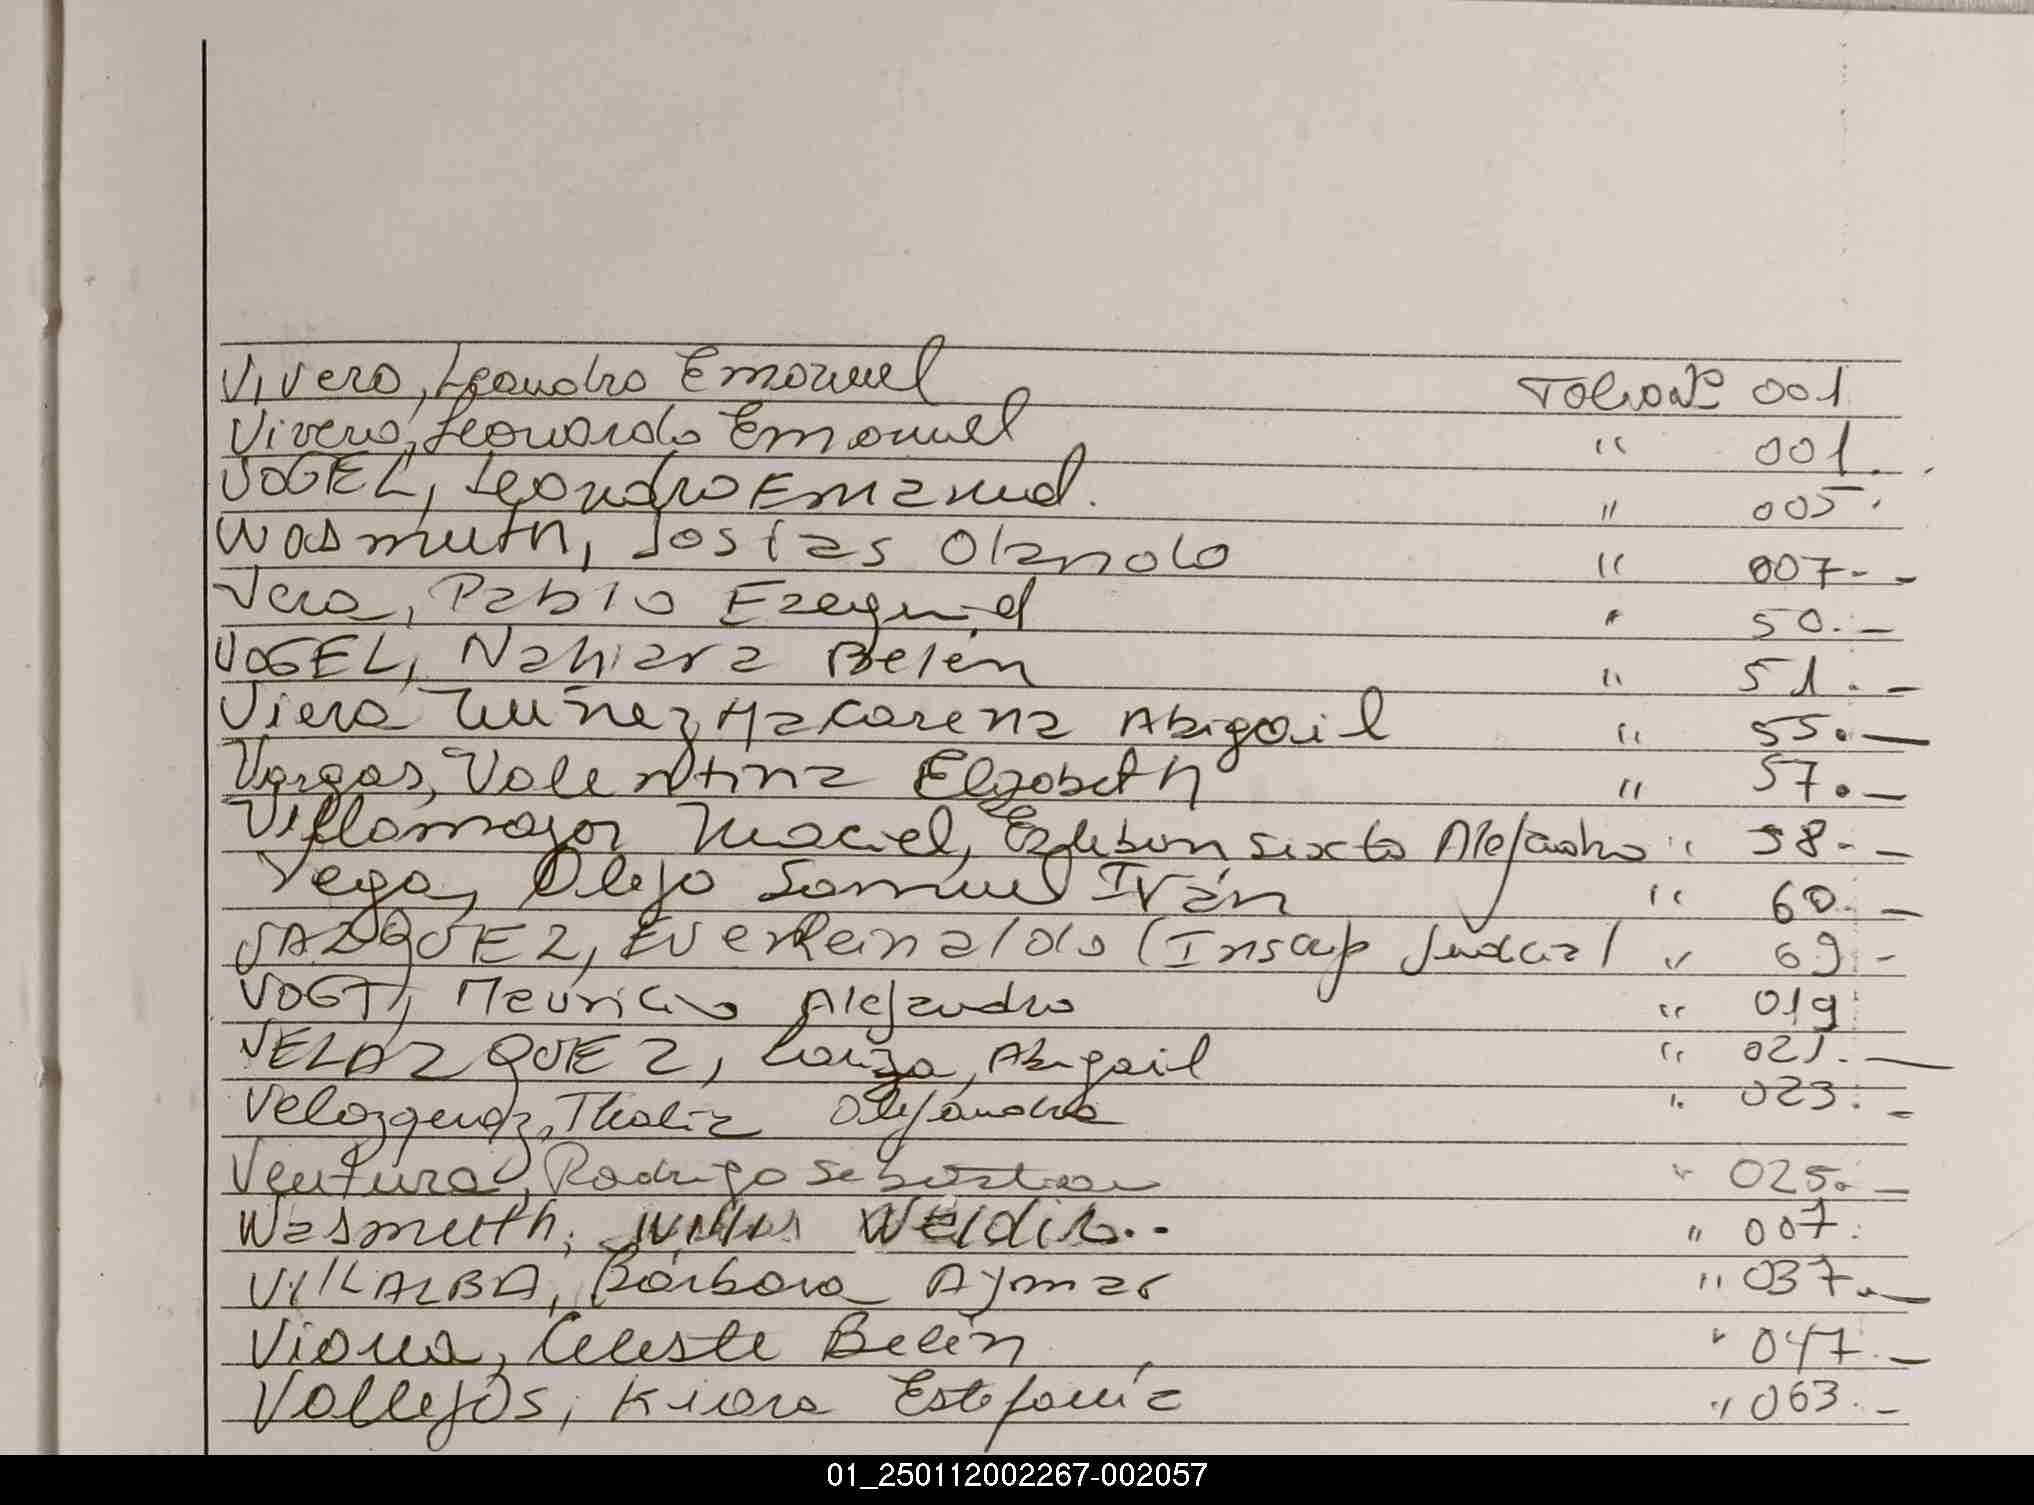 Vivero, Leandro Emanuel Folio Nº 001
Vivero, Leonardo Emanuel " 001.
VOGEL, Leandro Emanuel. " 005.
Wasmuth, Josías Olando " 007.-
Vera, Pablo Ezequiel " 50.-
VOGEL, Nahiara Belén " 51.-
Viera Nuñez, Macarena Abigail " 55.-
Vargas, Valentina Elizabeth " 57.-
Villamayor Maciel, Esteban Sixto Alejandro " 58.-
Vega, Alejo Samuel Iván " 60.-
VAZQUEZ, Ever Reinaldo (Inscrip Judicial " 69.-
VOGT, Mauricio Alejandro " 019
VELAZQUEZ, Luiza, Abigail " 021.-
Velazquez, Thalia Alejandra " 023.-
Ventura, Rodrigo Sebastian " 025.-
Wasmuth, " 007.
VILLALBA, Bárbara Aymar " 037.-
Viana, Celeste Belén " 047.-
Vallejos, Kiara Estefanía " 063.-
01_250112002267-002057